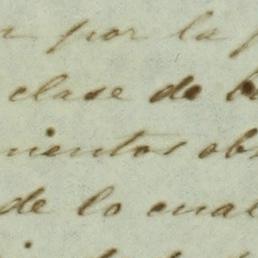 por la
clase de
mientos obs
de lo cual